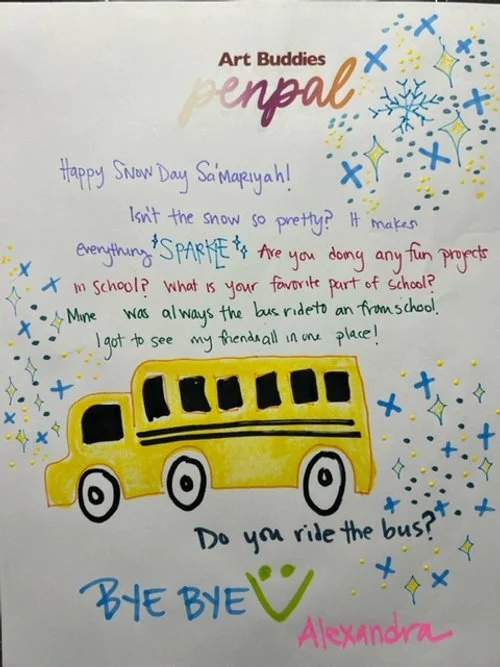 Art Buddies
penpal
Happy Snow Day Sa'Mariyah!
Isn't the snow so pretty? It makes
everything *SPARKLE* Are you doing any fun projects
in school? What is your favorite part of school?
Mine was always the bus ride to an from school.
I got to see my friends all in one place!
Do you ride the bus?
BYE BYE
Alexandra